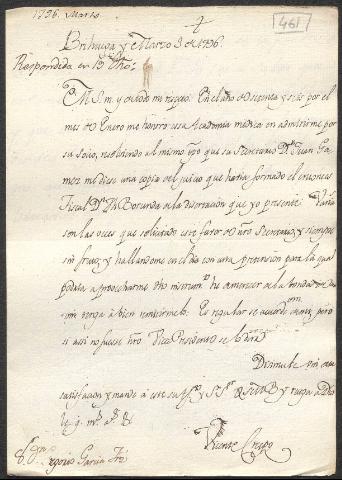 1796. Marzo
461
Brihuega y Marzo 8 de 1796.
Respondida en 13 dho.
M. S. m. y de todo mi respeto: En el año de setenta y seis por el
mes de Enero me honrró essa Academia medica en admitirme por
su socio, resolviendo al mismo tpo que su Secretario Dn. Juan Ga-
mez me diese una copia del juicio que havia formado el entonces
Fiscal Dn. Borunda de la disertacion que yo presenté: Varias
son las veces que è solicitado este favor de dho Secretario, y siempre
sin fruto; y hallandome en el dia con una pretension para la qual
podria aprovecharme dho instrumto. he de merecer de la bondad de
vm tenga à bien remitirmelo. Es regular se acuerde vm, pero
si assi no fuese, nro Vice Presidente se lo dirà
Disimule vm esta
satisfaccion, y mande à este su y ruega à Dios
le g. ms. as.
Vicente Crespo
Sr. Dn. Gregorio Garcia Frz